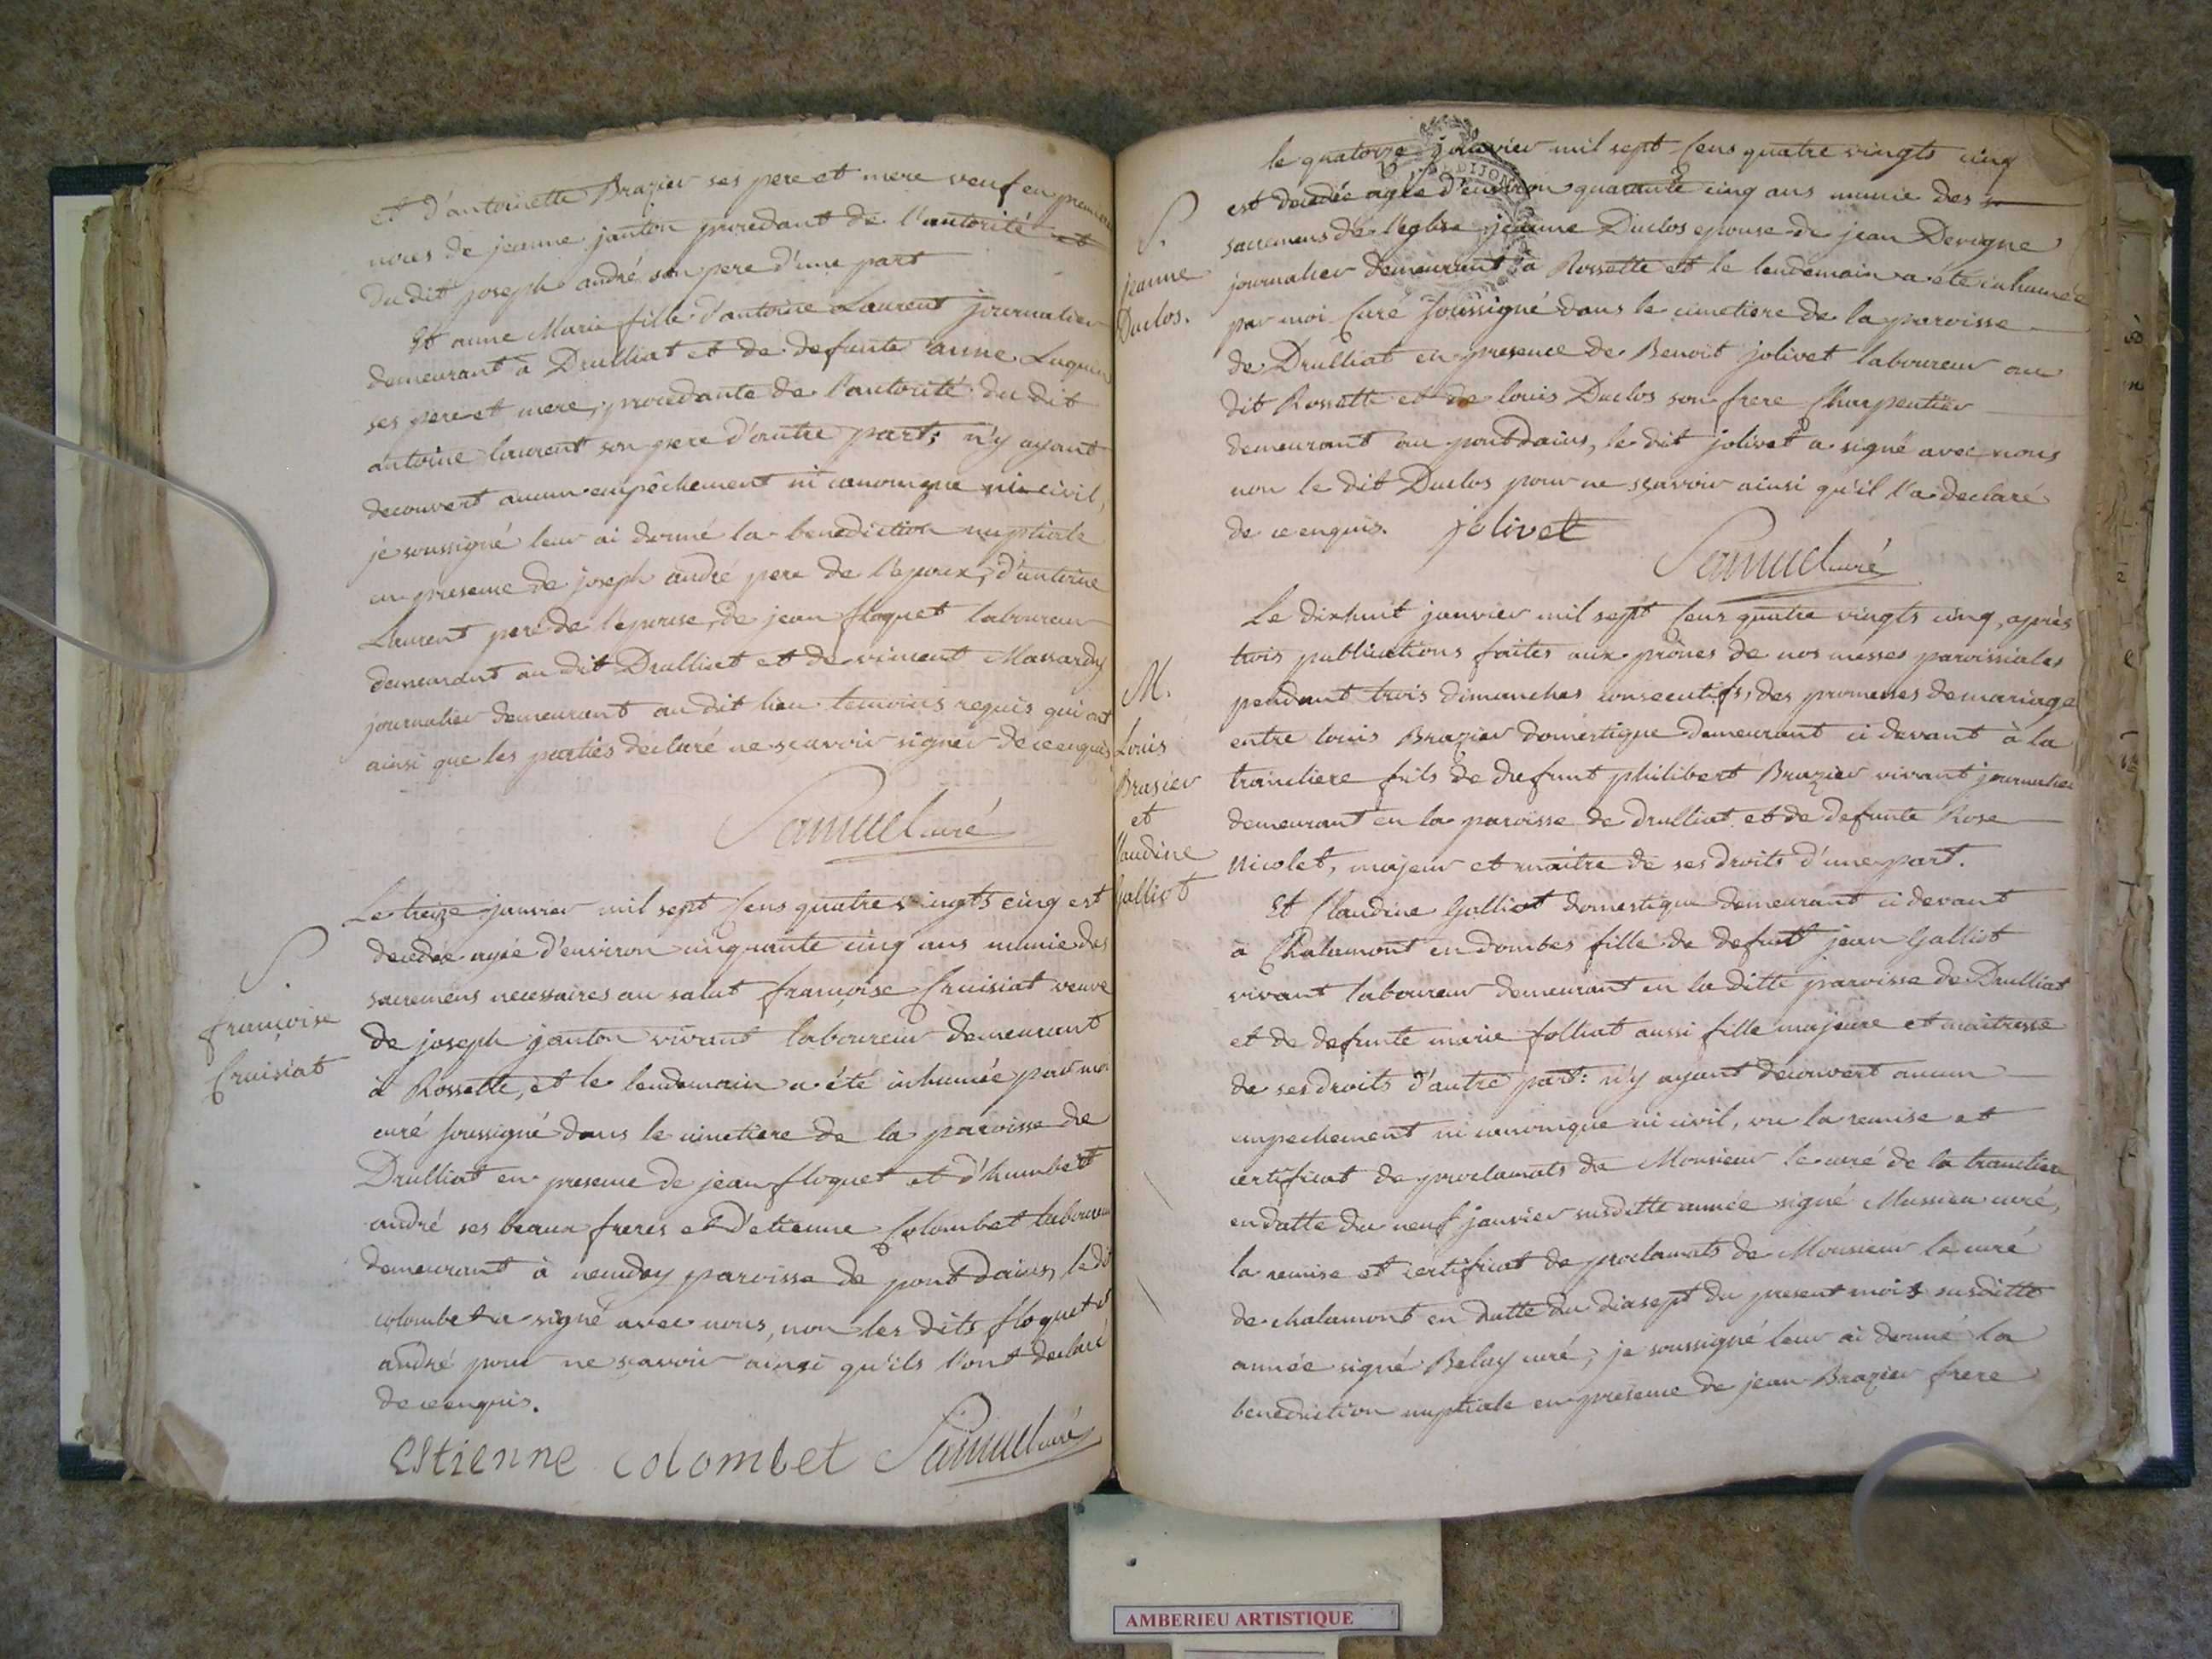 et d'antoinette Brazier ses pere et mere veuf en premieres
noces de jeanne janton procedant de l'autorité
du dit joseph andré son pere d'une part
Et anne Marie fille d'antoine Laurent journalier
demeurant à Drulliat et de defunte anne
ses pere et mere, procedante de l'autorité du dit
antoine laurent son pere d'autre part; n'y ayant
decouvert aucun empêchement ni canonique ni civil,
je soussigné leur ai donné la benediction nuptiale
en presence de joseph andré pere de l'epoux, d'antoine
Laurent pere de l'epouse, de jean floquet laboureur
demeurant au dit Drulliat et de vincent Massardy
journalier demeurant au dit lieu temoins requis qui ont
ainsi que les parties declaré ne scavoir signer de ce enquis
Samuel curé
S.
françoise
Cruisiat
Le treize janvier mil sept Cens quatre vingts cinq est
decedée agée d'environ cinquante cinq ans munie des
sacremens necessaires au salut françoise Cruisiat veuve
de joseph janton vivant laboureur demeurant
à Rossette, et le lendemain a été inhumée par moi
curé soussigné dans le cimetiere de la paroisse de
Drulliat en presence de jean floquet et d'humbert
andré ses beaux freres et d'etienne Colombet laboureur
demeurant à neuday paroisse de pont dains, le dit
colombet a signé avec nous, non les dits floquet et
andré pour ne scavoir ainsi qu'ils l'ont declaré
de ce enquis.
Estienne colombet Samuel curé
S.
jeanne
Duclos.
le quatorze janvier mil sept Cens quatre vingts cinq
est decedée agée d'environ quarante cinq ans munie des
sacremens de l'eglise jeanne Duclos epouse de jean Devigne
journalier demeurant à Rossette et le lendemain a été inhumée
par moi Curé soussigné dans le cimetiere de la paroisse
de Drulliat en presence de Benoit jolivet laboureur au
dit Rossette et de louis Duclos son frere Charpentier
demeurant au pont dains, le dit jolivet a signé avec nous
non le dit Duclos pour ne scavoir ainsi qu'il l'a declaré
de ce enquis. jolivet
Samuel curé
M.
Louis
Brasier
et
Claudine
Galliot
Le dixhuit janvier mil sept Cens quatre vingts cinq, après
trois publications faites aux prônes de nos messes paroissiales
pendant trois dimanches consecutifs, des promesses de mariage
entre louis Brazier domestique demeurant ci devant à la
trancliere fils de defunt philibert Brazier vivant journalier
demeurant en la paroisse de drulliat et de defunte Rose
Nicolet, majeur et maitre de ses droits d'une part.
Et Claudine Galliot domestique demeurant ci devant
à Chalamont en dombes fille de defunt jean Galliot
vivant laboureur demeurant en la ditte paroisse de Drulliat
et de defunte marie folliat aussi fille majeure et maitresse
de ses droits d'autre part: n'y ayant decouvert aucun
empechement ni canonique ni civil, vu la remise et
certificat de proclamats de Monsieur le curé de la trancliere
en datte du neuf janvier susditte année signé Massieu curé,
la remise et certificat de proclamats de Monsieur le curé
de chalamont en datte du dixsept du present mois susditte
année signé Belay curé, je soussigné leur ai donné la
benediction nuptiale en presence de jean Brazier frere
AMBERIEU ARTISTIQUE